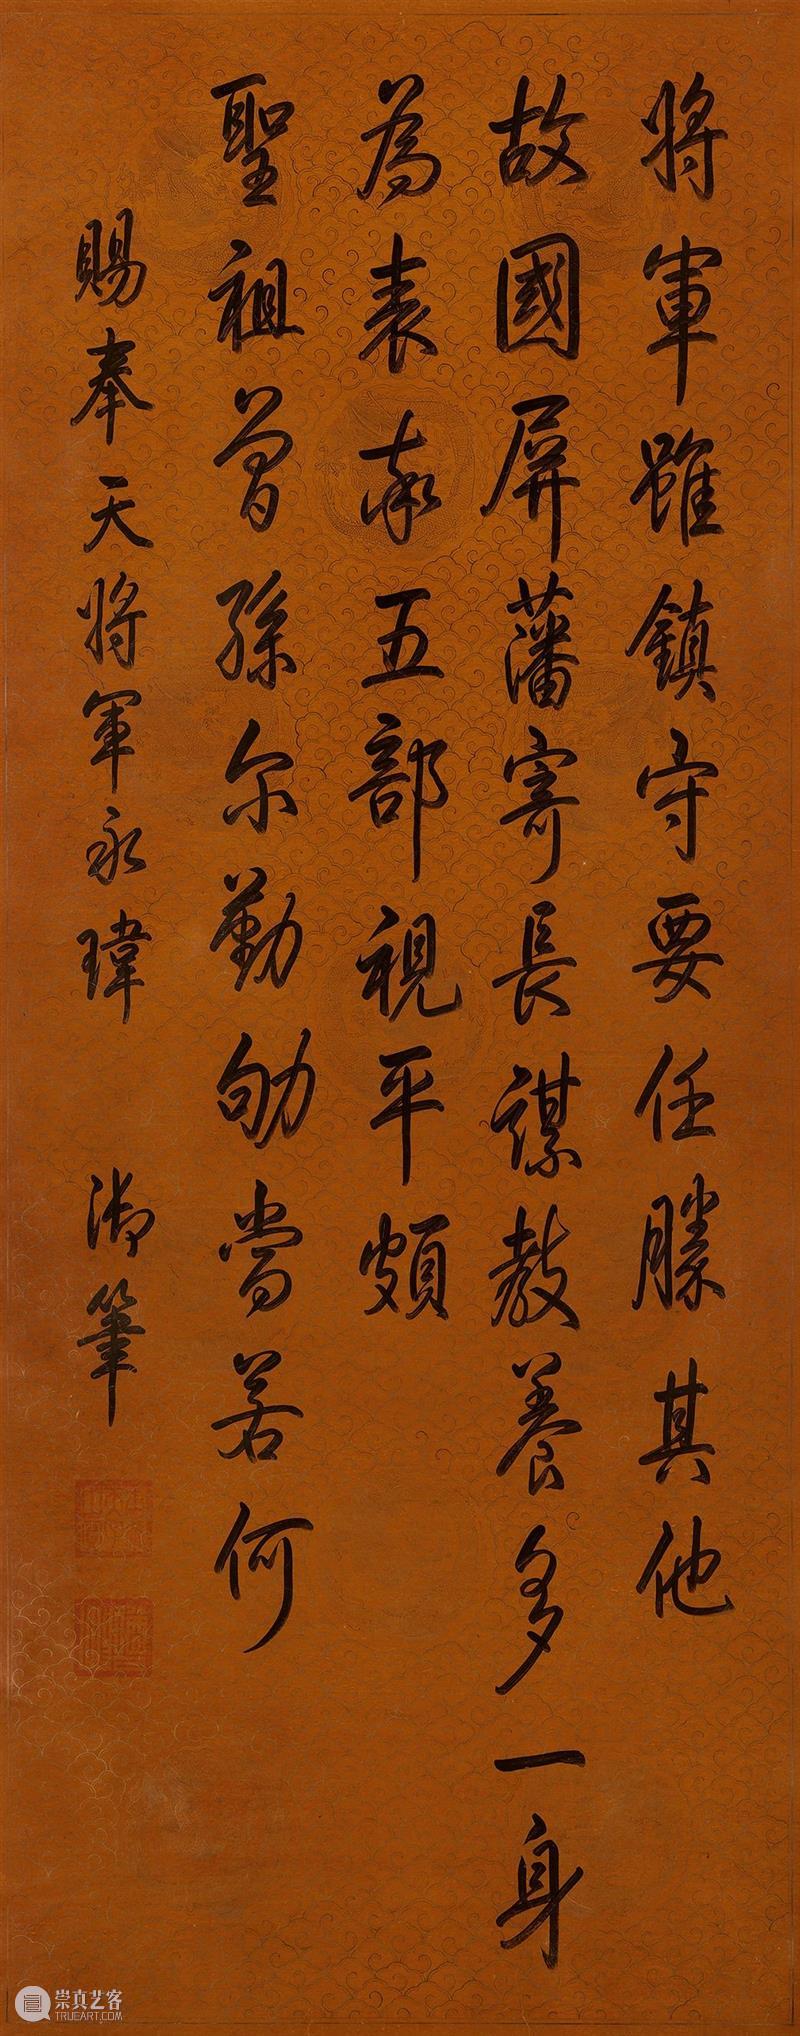 將軍雖鎮守要任勝其他
故國屏藩寄長謀教養多一身
為表率五部視平頗
聖祖曾孫尔勤劬當若何
賜奉天將軍永瑋 御筆
崇真艺客
TRUEART.COM